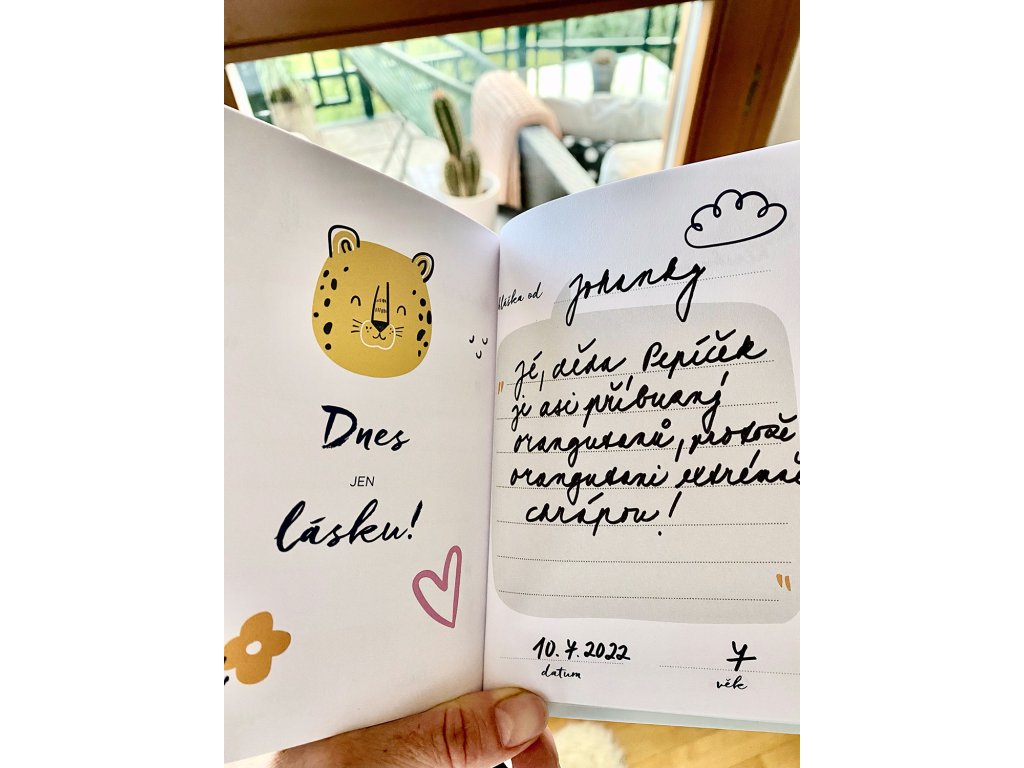 Dnes
JEN
lásku!
hláška od Johanky
"Jé, děda Pepíček
je asi příbuzný
orangutanů, protože
orangutani extrémně
chrápou!
"
10.7.2022
datum
7
věk